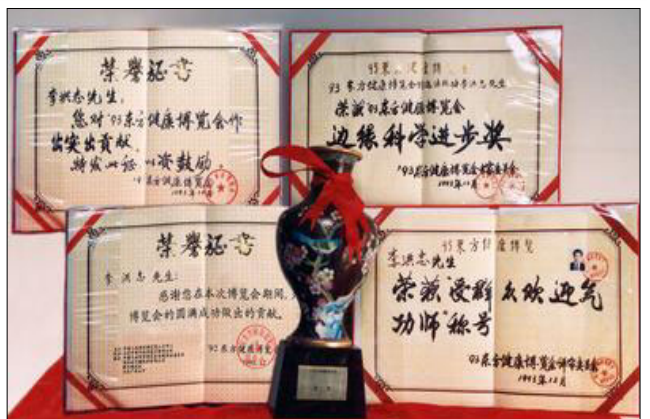 荣誉证书
李洪志先生:
您对'93东方健康博览会作
出突出贡献。
特发此证 以资鼓励。
'93东方健康博览会
1993年12月
'93东方健康博览会
李洪志先生
荣获'93东方健康博览会
边缘科学进步奖
'93东方健康博览会评审委员会
1993年12月
荣誉证书
李洪志先生:
感谢您在本次博览会期间,
博览会的圆满成功做出的贡献。
'92东方健康博览
'93东方健康博览
李洪志先生
荣获"受群众欢迎气
功师"称号
'93东方健康博览会评审委员会
1993年12月